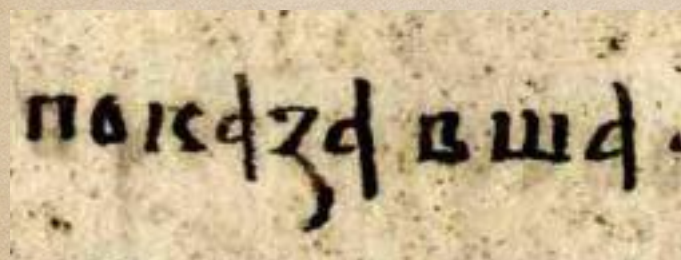 показа вша